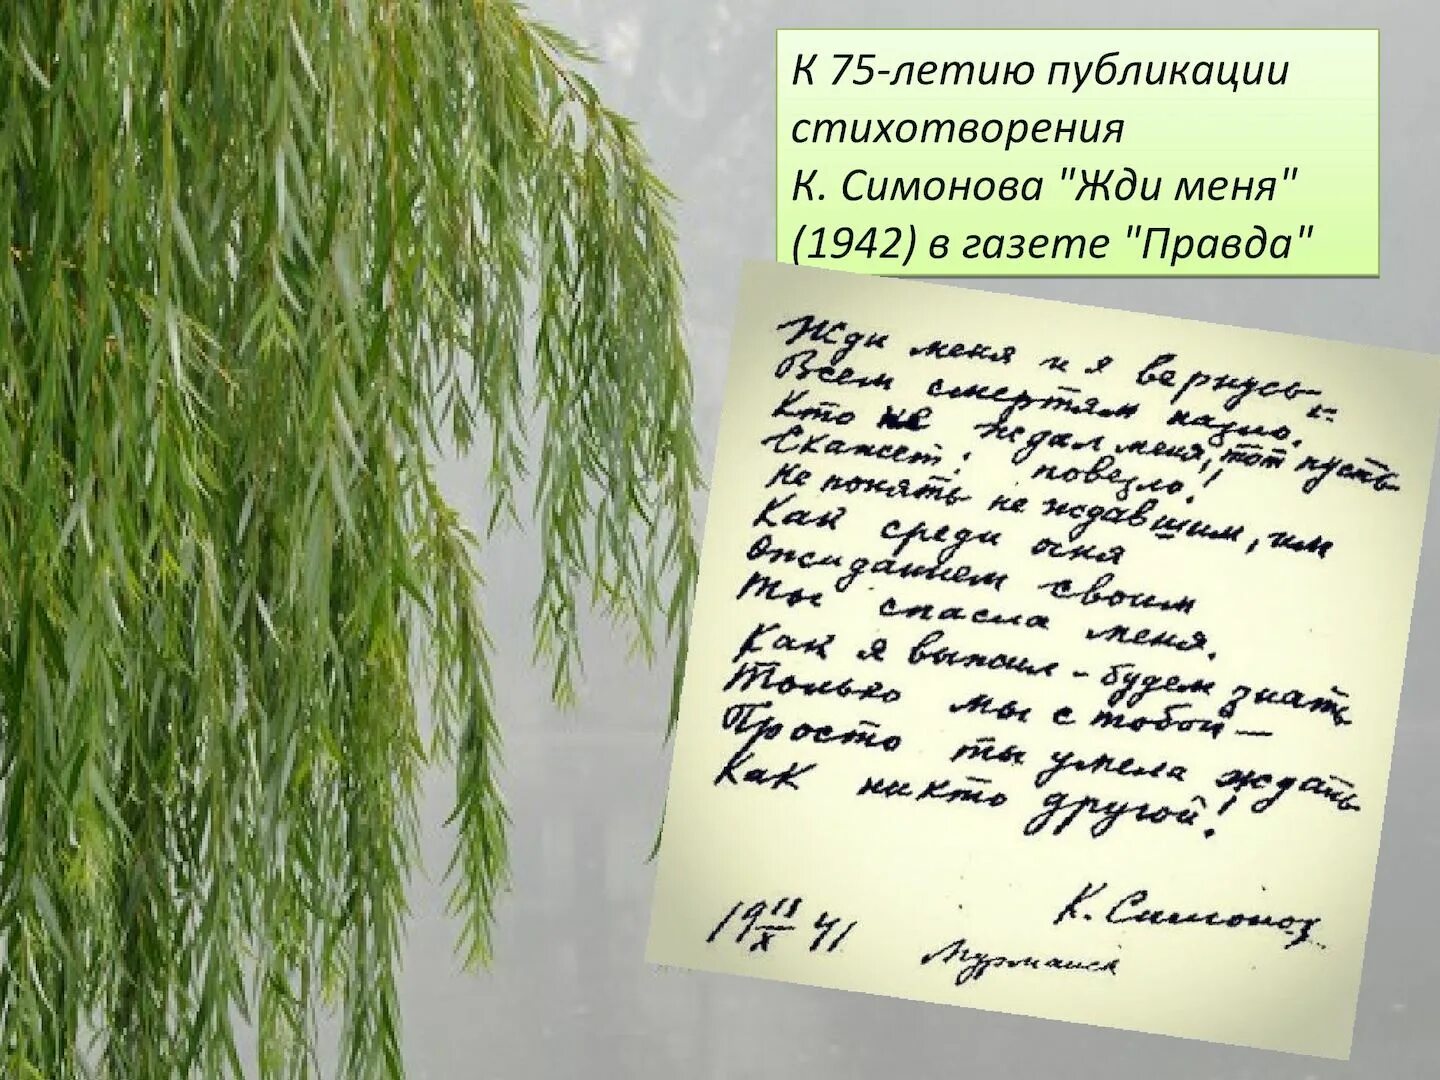 К 75-летию публикации
стихотворения
К. Симонова "Жди меня"
(1942) в газете "Правда"
Жди меня и я вернусь –
Всем смертям назло.
Кто не ждал меня, тот пусть
Скажет: повезло!
Не понять не ждавшим, им
Как среди огня
Ожиданием своим
Ты спасла меня.
Как я выжил – будем знать
Только мы с тобой –
Просто ты умела ждать
Как никто другой!
К. Симонов
19 13/X 41
Мурманск